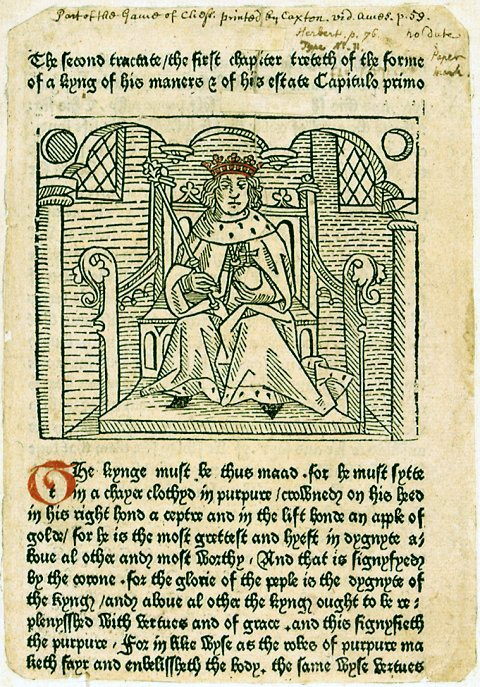 Part of the Game of Chess printed by Caxton. vid. Ames. p. 59.
Herbert. p. 76 no date
Type N. 11. Paper
mark.
The second tractate /the first chapiter treteth of the forme
of a kyng of his maners & of his estate Capitulo primo
The kynge must be thus maad . for he must sytte
in a chayer clothyd in purpure /crowned on his heed
in his right hond a ceptre and in the lift honde an apple of
golde/ for he is the most grettest and hyest in dygnyte a/
boue al other and most worthy . And that is signyfyed
by the corone . for the glorie of the peple is the dygnyte of
the kyng /and aboue al other the kyng ought to be re/
plenysshed with vertues and of grace . and this signyfieth
the purpure . For in like wyse as the robes of purpure ma
keth fayr and enbelissheth the body . the same wyse vertues